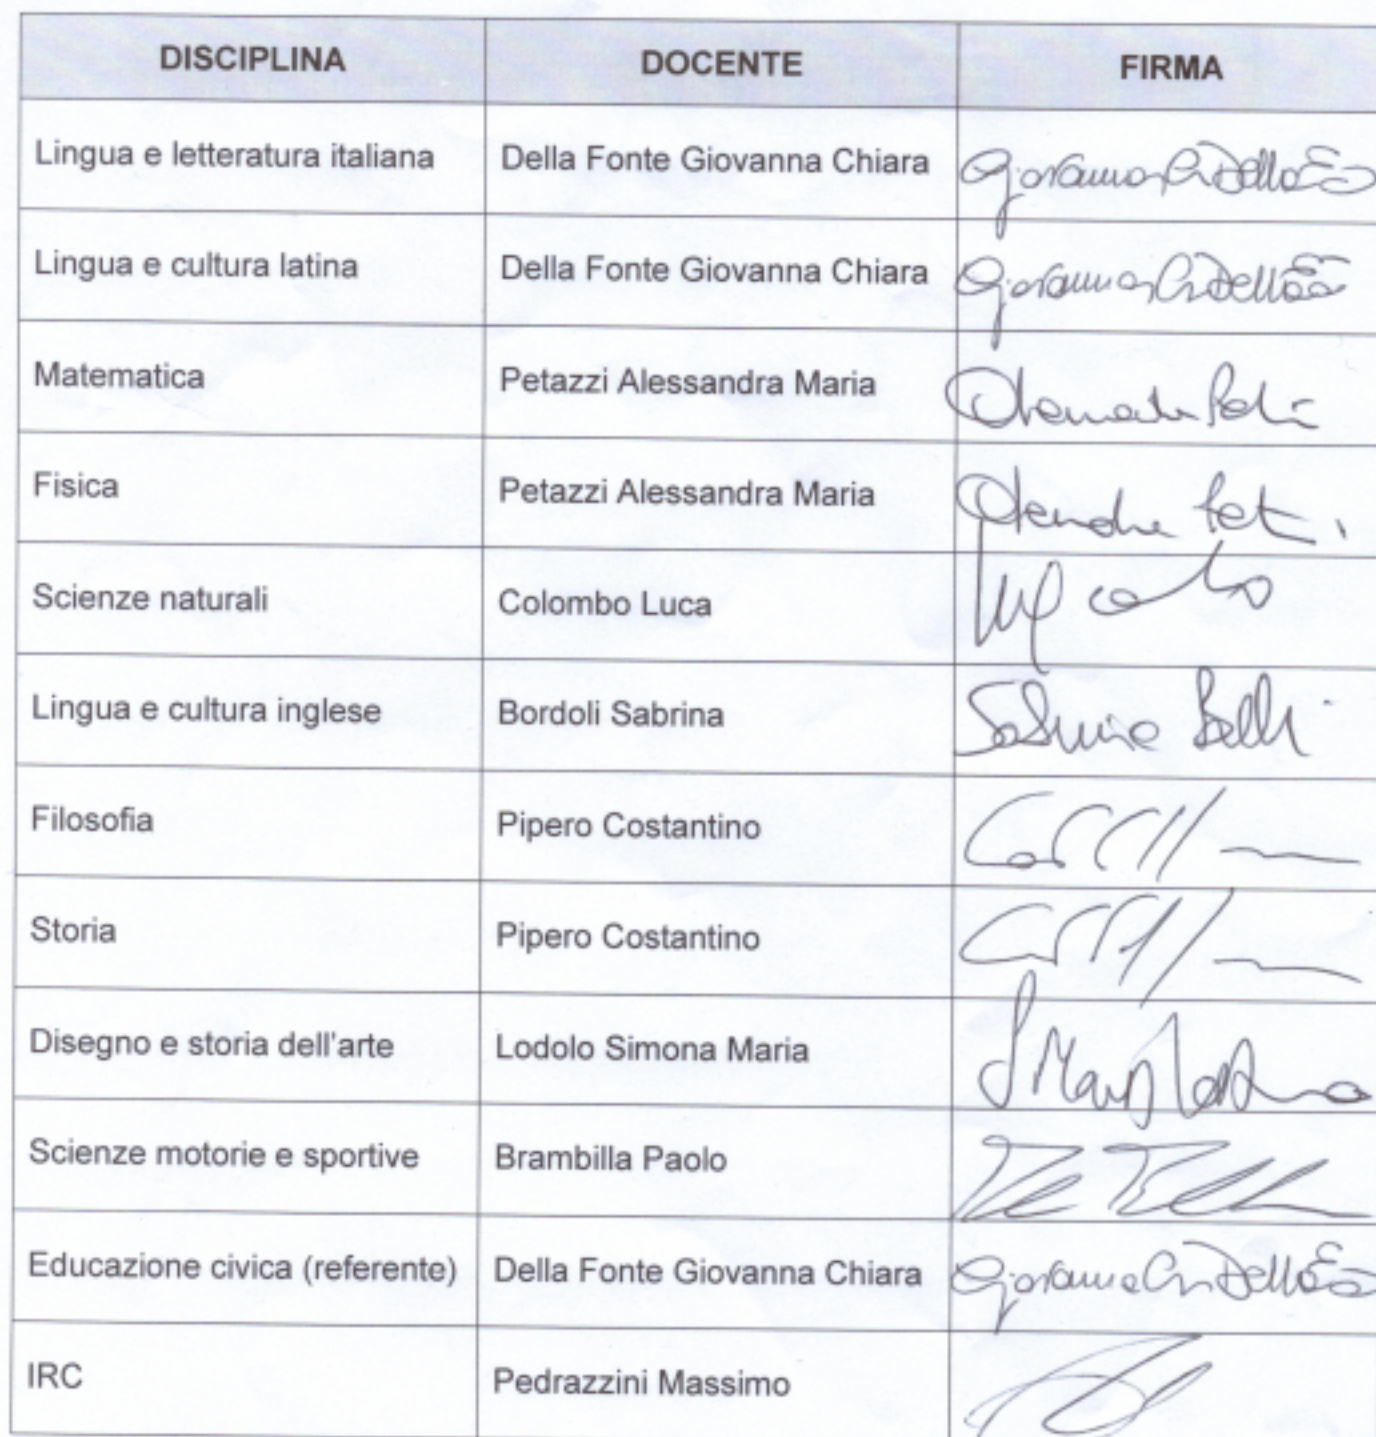 DISCIPLINA DOCENTE FIRMA
Lingua e letteratura italiana Della Fonte Giovanna Chiara
Lingua e cultura latina Della Fonte Giovanna Chiara
Matematica Petazzi Alessandra Maria
Fisica Petazzi Alessandra Maria
Scienze naturali Colombo Luca
Lingua e cultura inglese Bordoli Sabrina
Filosofia Pipero Costantino
Storia Pipero Costantino
Disegno e storia dell'arte Lodolo Simona Maria
Scienze motorie e sportive Brambilla Paolo
Educazione civica (referente) Della Fonte Giovanna Chiara
IRC Pedrazzini Massimo